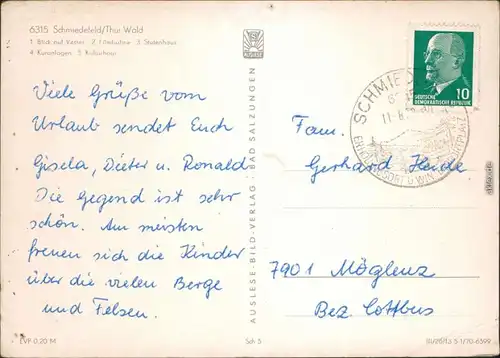 6315 Schmiedefeld/Thür Wald
1 Blick auf Vesser 2 Liftbaude 3 Stutenhaus
4 Kuranlagen 5 Kulturhaus
Viele Grüße vom
Urlaub sendet Euch
Gisela, Dieter u. Ronald
Die Gegend ist sehr
schön. Am meisten
freuen sich die Kinder
über die vielen Berge
und Felsen.
EVP 0,20 M
AUSLESE
AUSLESE-BILD-VERLAG · BAD SALZUNGEN
Sch 5
DEUTSCHE
DEMOKRATISCHE REPUBLIK
10
SCHMIED
Fam.
Gerhard Heide
7901 Möglenz
Bez. Cottbus
III/26/13 S 1/70-6599